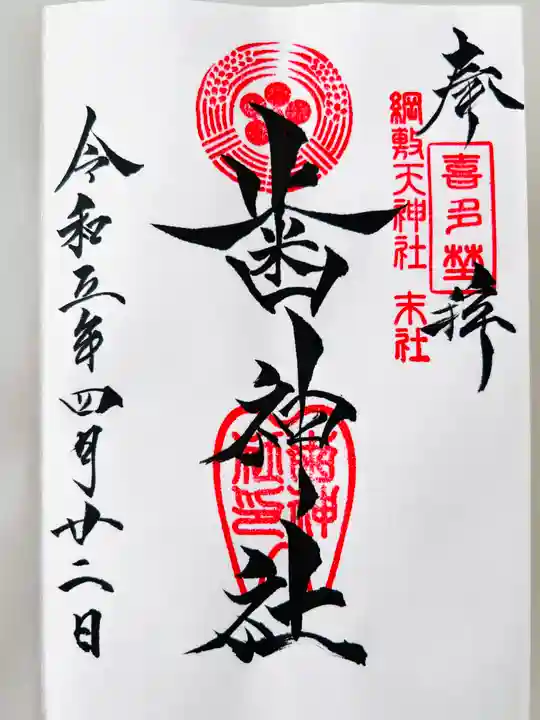 奉拝
喜多埜
綱敷天神社 末社
歯神社
令和五年四月廿二日